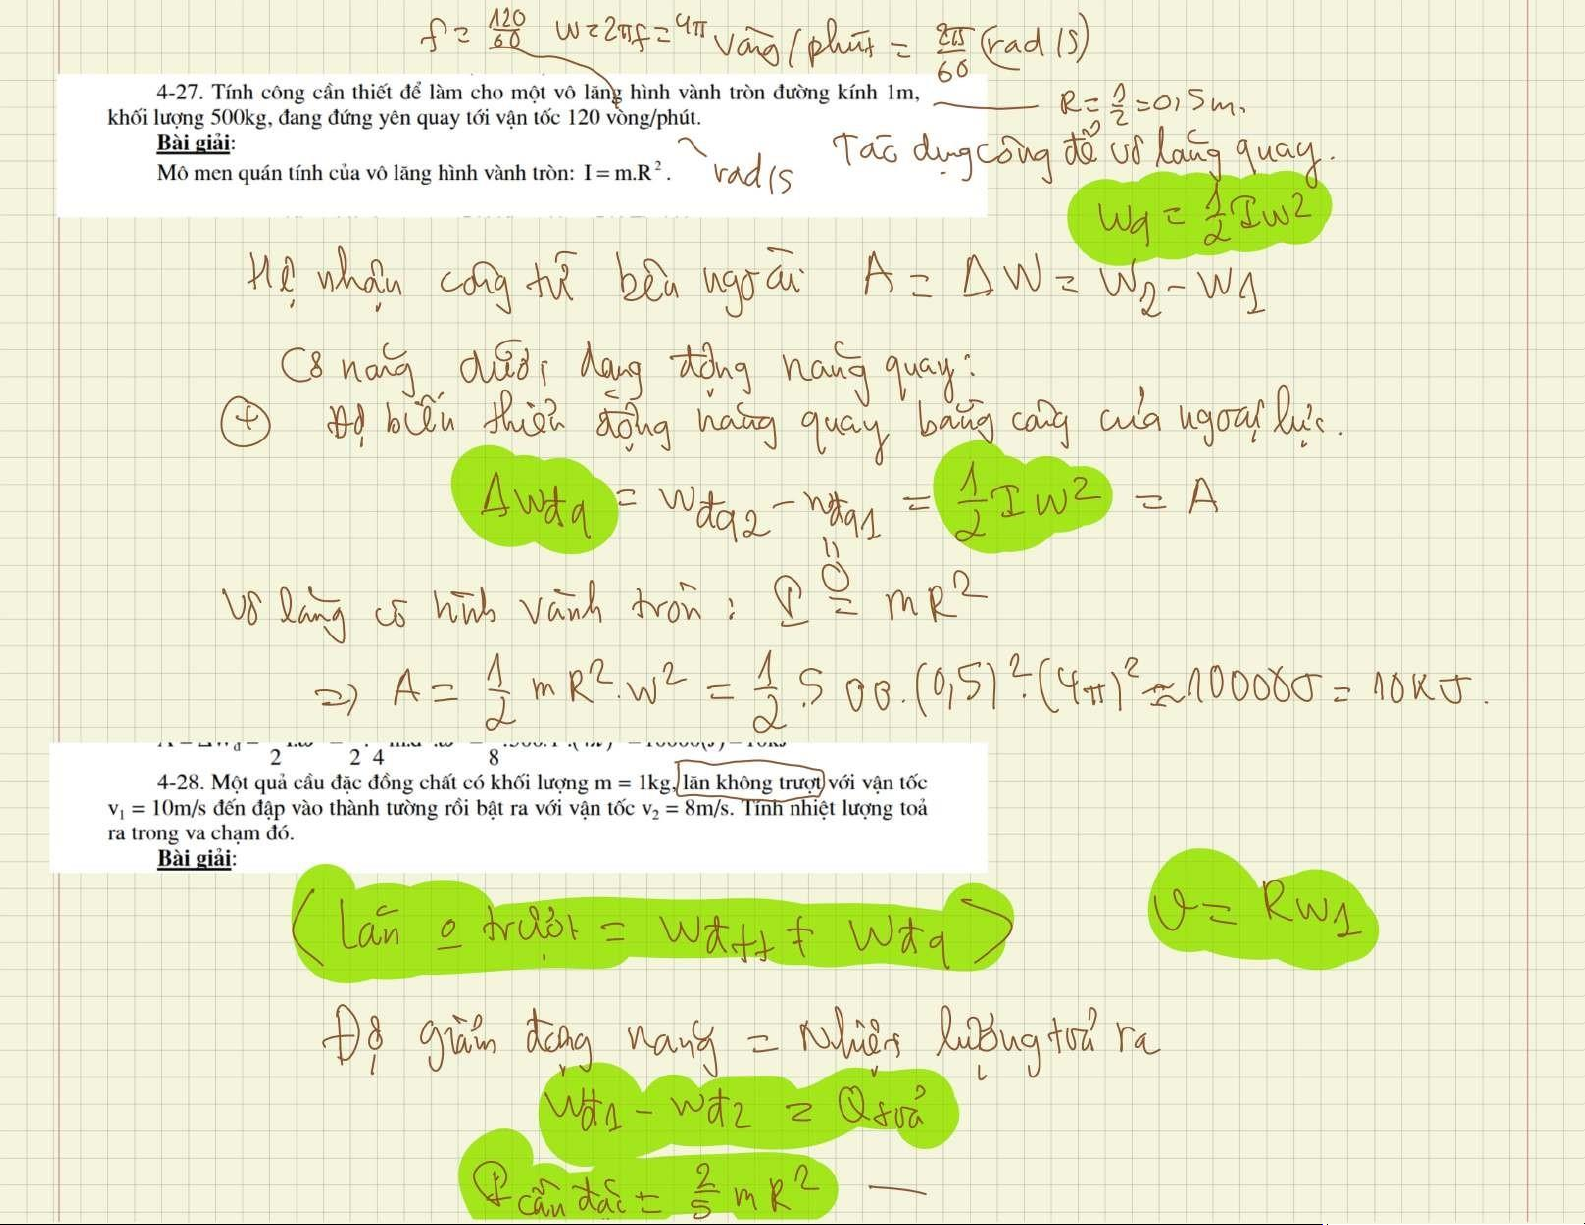 f = 120/60 w = 2πf = 4π vòng/phút = 2π/60 (rad/s)
4-27. Tính công cần thiết để làm cho một vô lăng hình vành tròn đường kính 1m,
khối lượng 500kg, đang đứng yên quay tới vận tốc 120 vòng/phút.
R = 1/2 = 0,5m.
Bài giải:
Tác dụng công để vô lăng quay.
Mô men quán tính của vô lăng hình vành tròn: I = m.R².
rad/s
Wq = 1/2 Iw²
Hệ nhận công từ bên ngoài A = ΔW = W2 - W1
Cơ năng dưới dạng động năng quay:
+ Độ biến thiên động năng quay bằng công của ngoại lực.
ΔWđq = Wđq2 - Wđq1 = 1/2 I w² = A
"
0
Vô lăng có hình vành tròn: I = mR²
=> A = 1/2 mR².w² = 1/2 . 500.(0,5)².(4π)² ≈ 10000J = 10KJ.
2 2 4 8
4-28. Một quả cầu đặc đồng chất có khối lượng m = 1kg, lăn không trượt với vận tốc
v₁ = 10m/s đến đập vào thành tường rồi bật ra với vận tốc v₂ = 8m/s. Tính nhiệt lượng toả
ra trong va chạm đó.
Bài giải:
(Lăn o trượt = Wđtt + Wđq) v = Rw1
Độ giảm động năng = Nhiệt lượng toả ra
Wđ1 - Wđ2 = Q toả
I cầu đặc = 2/5 mR² —